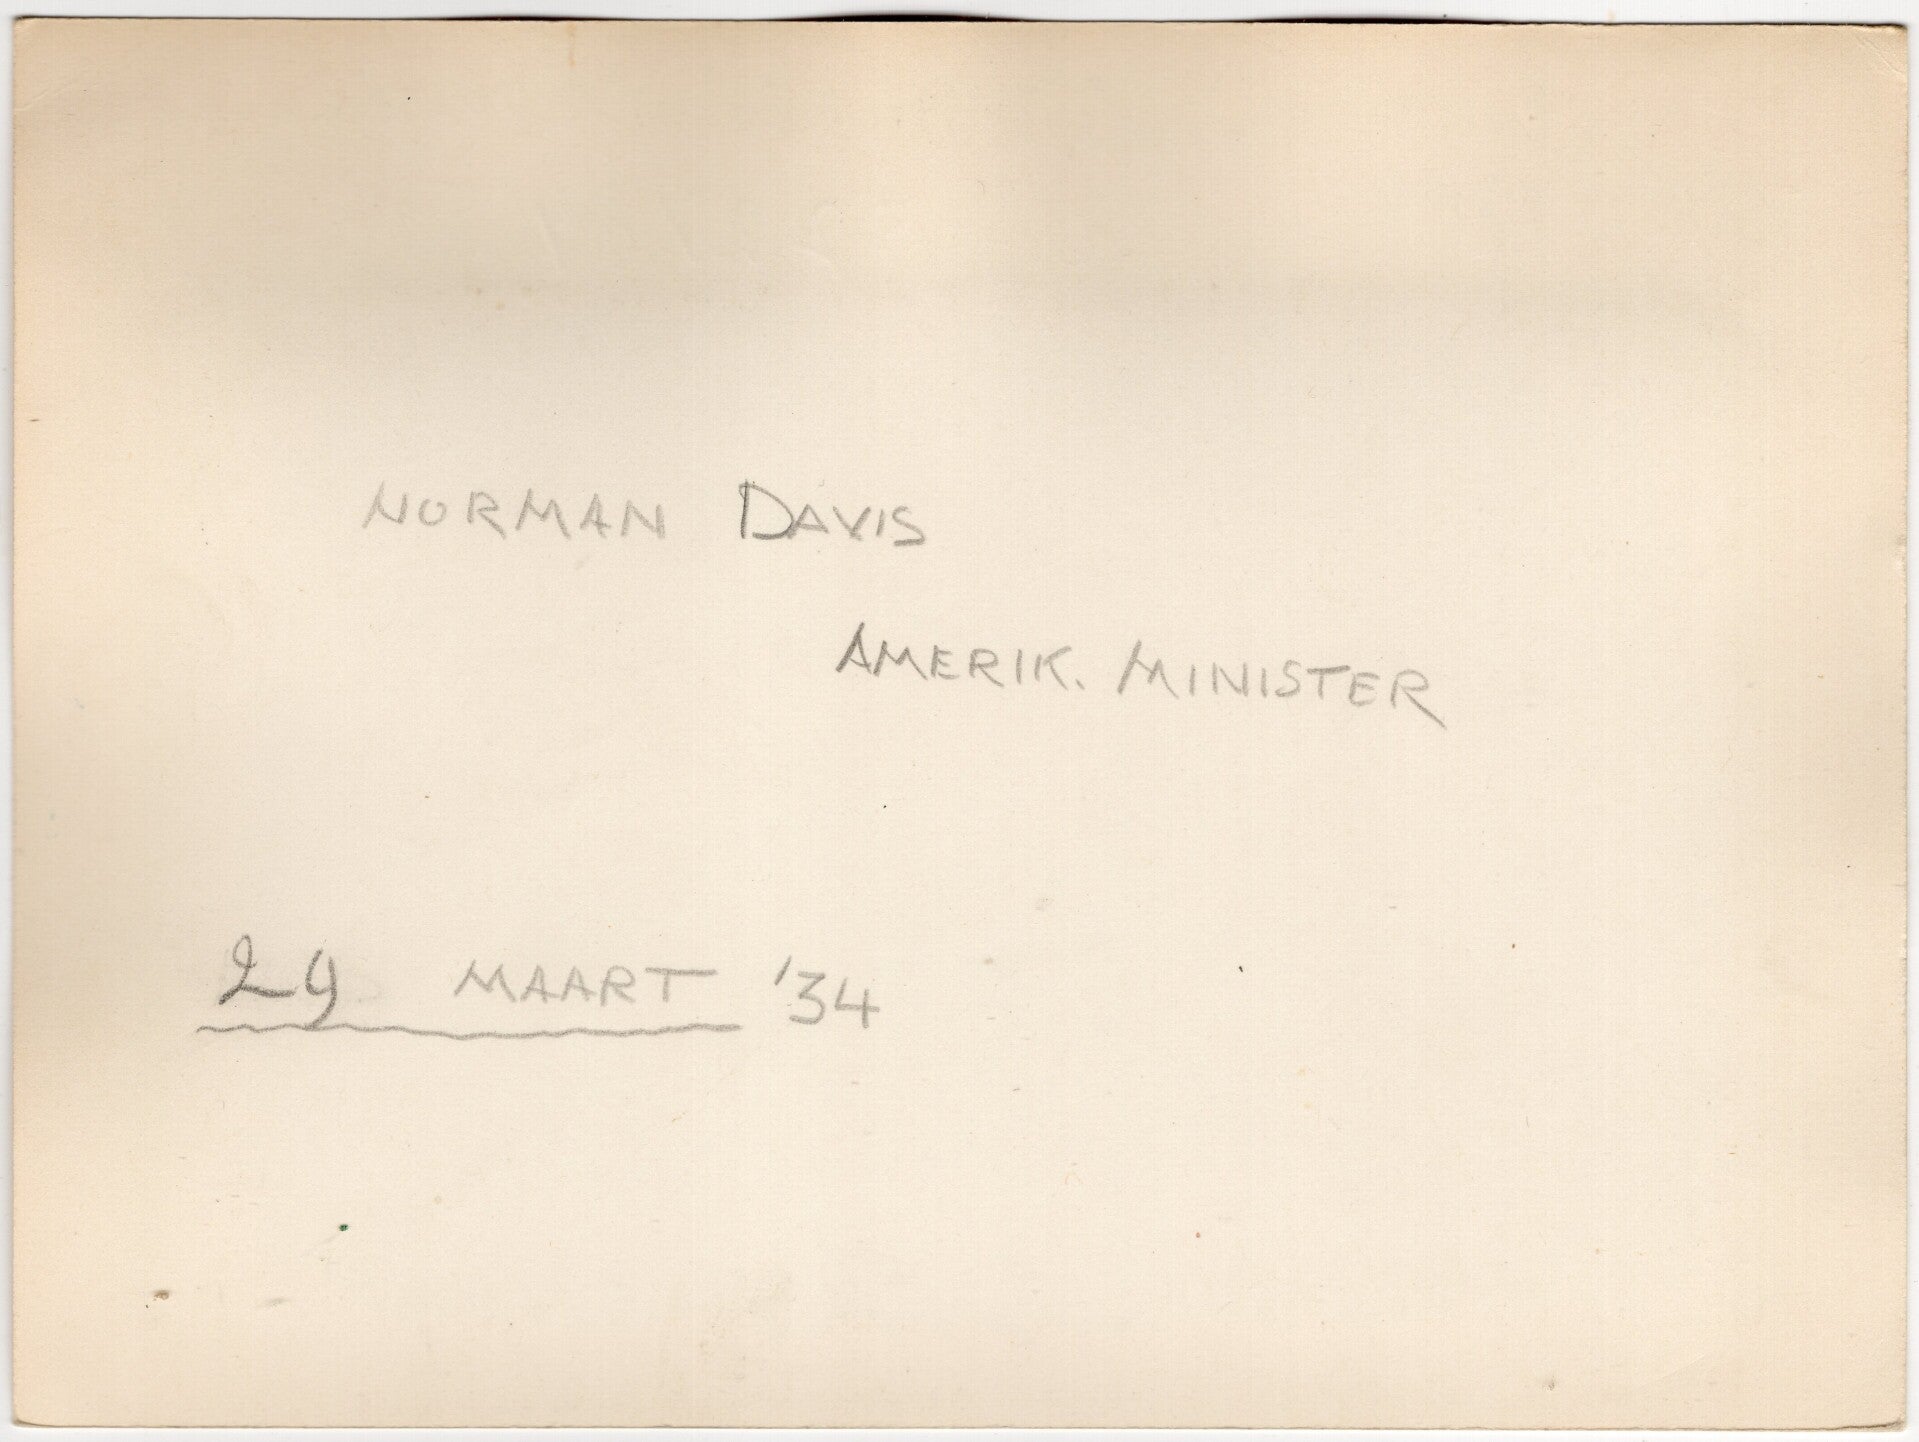 NORMAN DAVIS
AMERIK. MINISTER
29 MAART '34